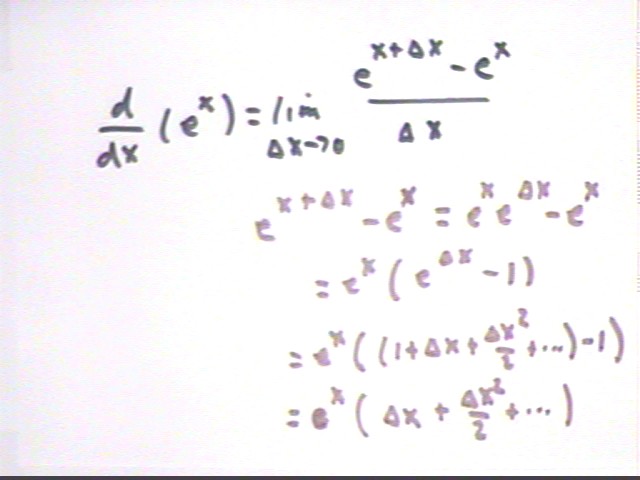 d/dx (e^x) = lim Δx→0 (e^(x+Δx) - e^x)/Δx
e^(x+Δx) - e^x = e^x e^Δx - e^x
= e^x (e^Δx - 1)
= e^x ((1 + Δx + Δx²/2 + ...) - 1)
= e^x (Δx + Δx²/2 + ...)